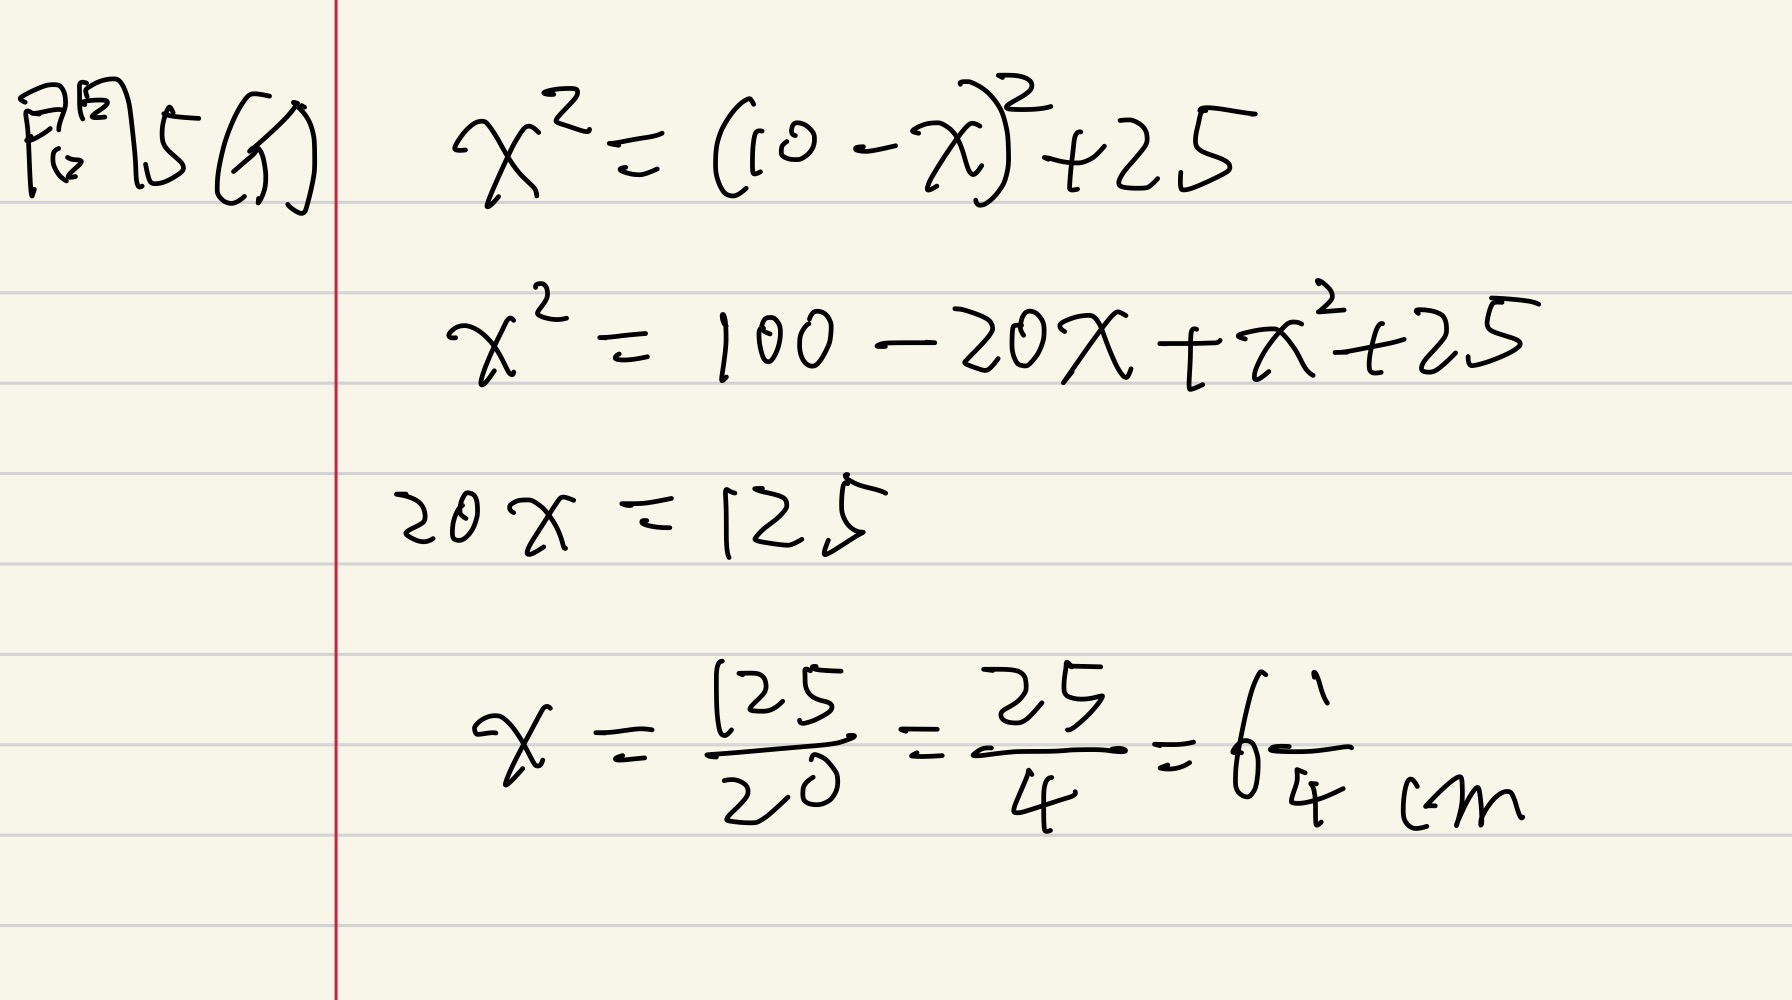 問5(イ) x² = (10 - x)² + 25
x² = 100 - 20x + x² + 25
20x = 125
x = 125/20 = 25/4 = 6 1/4 cm